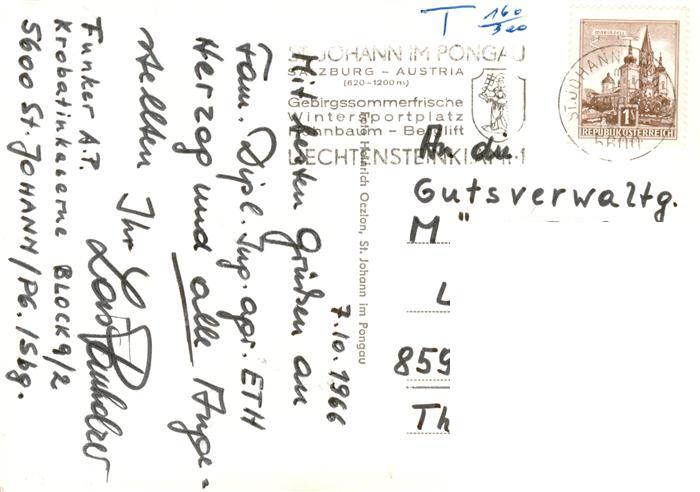 T 160/300
MARIAZELL
1S
REPUBLIK ÖSTERREICH
ST. JOHANN
5600
ST. JOHANN IM PONGAU
SALZBURG – AUSTRIA
(620–1200m)
Gebirgssommerfrische
Wintersportplatz
Hahnbaum – Berglift
LIECHTENSTEINKLAMM
An die
Gutsverwaltg.
M"
L
859
Th
Heinrich Oczlon, St. Johann im Pongau
7.10.1966
Mit besten Grüßen an
Fam. Dipl. Ing. agr. ETH
Herzog und alle Ange=
stellten Ihr
Funker A.P.
Krobatinkaserne BLOCK 9/2
5600 St. JOHANN/PG. / Sbg.